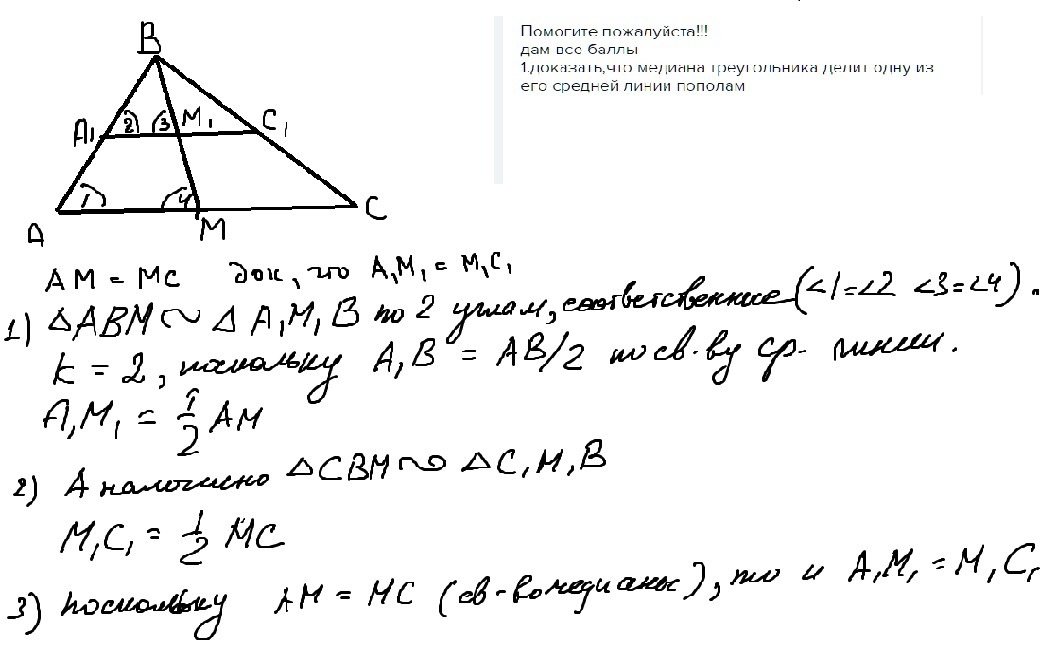 Помогите пожалуйста!!!
дам все баллы
1.доказать,что медиана треугольника делит одну из
его средней линии пополам
B
A₁ 2 3 M₁ C₁
1 4
A M C
AM = MC док, что A₁M₁ = M₁C₁
1) △ABM ∾ △A₁M₁B по 2 углам, соответственные (∠1=∠2 ∠3=∠4).
k = 2, поскольку A₁B = AB/2 по св-ву ср. линии.
A₁M₁ = 1/2 AM
2) Аналогично △CBM ∾ △C₁M₁B
M₁C₁ = 1/2 MC
3) поскольку AM = MC (св-во медианы), то и A₁M₁ = M₁C₁